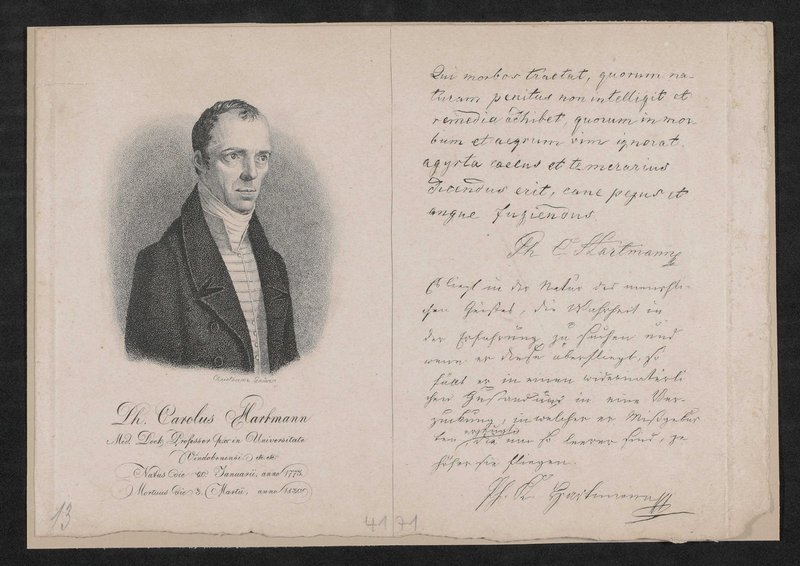 Ph. Carolus Hartmann
Med. Doct. Professor in Universitate
Vindobonensi etc. etc.
Natus die 20 Januarii, anno 1773.
Mortuus die 3. Martii, anno 1830.
13
4171
Qui morbos tractat, quorum na-
turam penitus non intelligit et
remedia adhibet, quorum in mor
bum et aegrum vim ignorat,
agyrta caecus et temerarius
dicendus erit, cane pejus et
angue fugiendus.
Ph C Hartmann
Es liegt in der Natur des menschli-
chen Geistes, die Wahrheit in
der Erfahrung zu suchen und
wenn er diese überfliegt, so
fällt er in einen widernatürli
chen Zustand, in eine Ver-
zuckung, in welcher er Mißgebur
ten erzeugt, die um so leerer sind, je
höher sie fliegen.
Ph. K. Hartmann